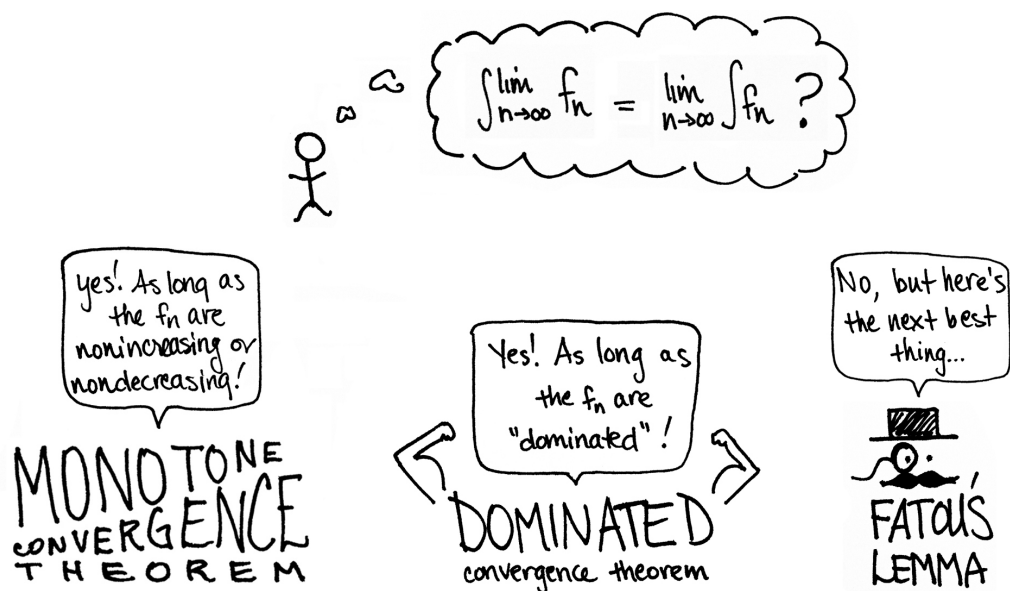 ∫ lim n→∞ fn = lim n→∞ ∫ fn ?
yes! As long as
the fn are
nonincreasing or
nondecreasing!
MONOTONE
CONVERGENCE
THEOREM
Yes! As long as
the fn are
"dominated" !
DOMINATED
convergence theorem
No, but here's
the next best
thing...
FATOU'S
LEMMA